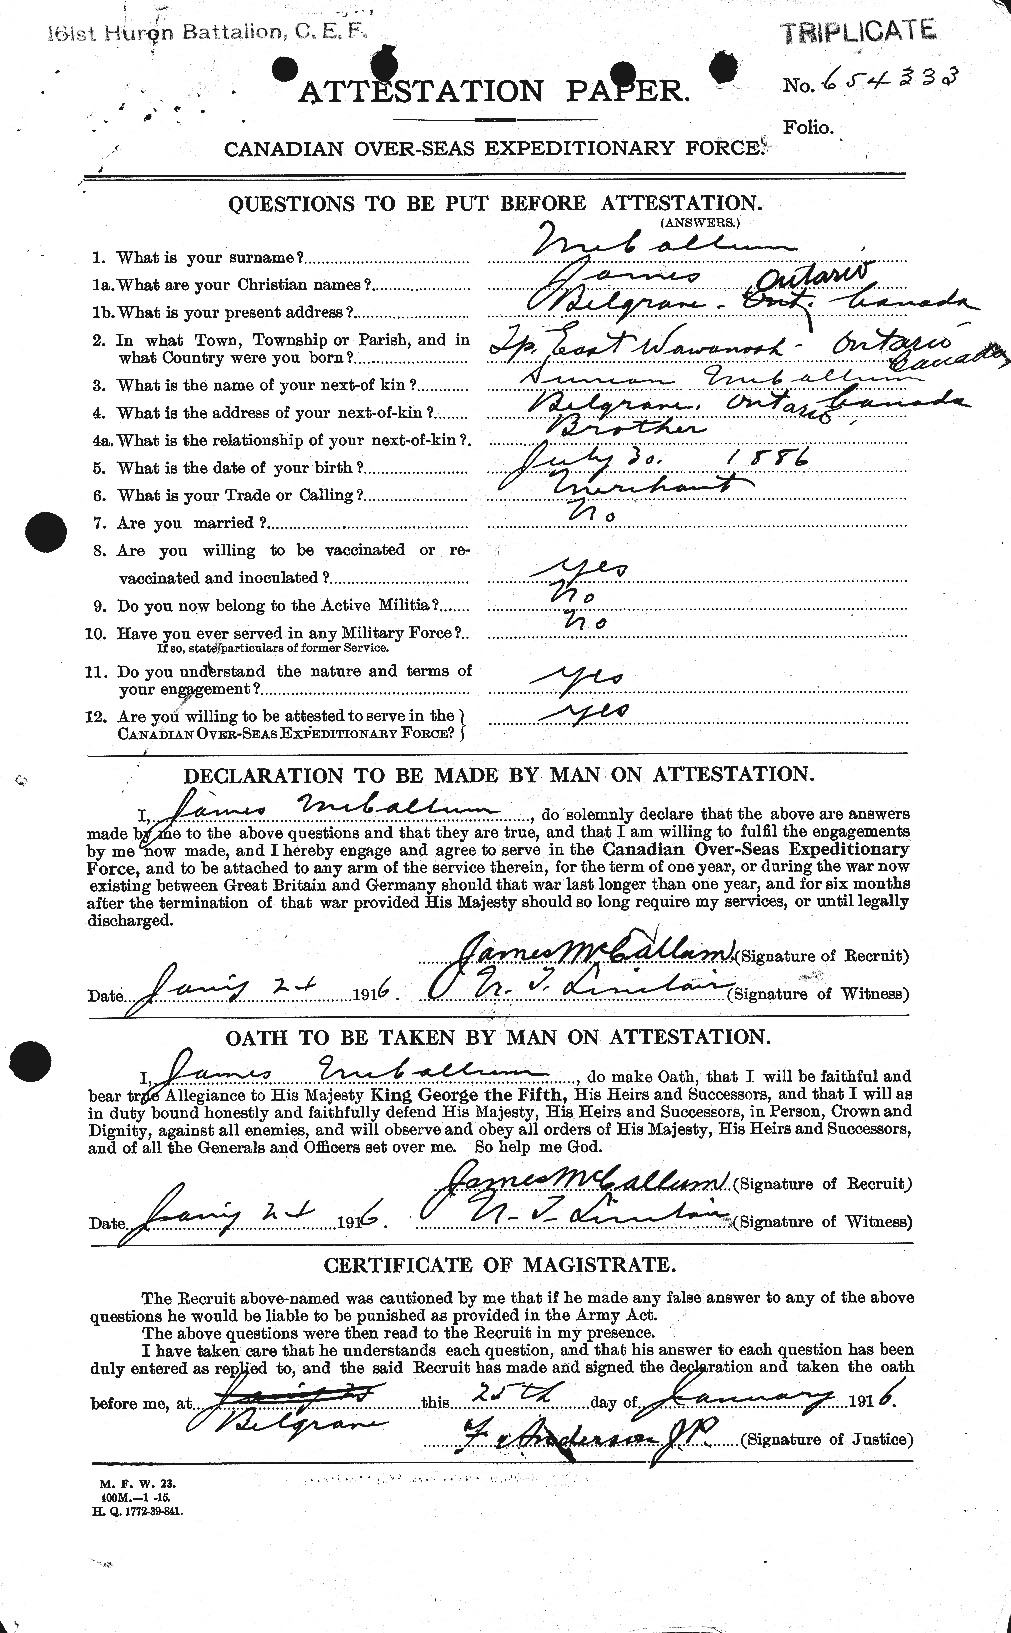 161st Huron Battalion, C. E. F.
TRIPLICATE
ATTESTATION PAPER.
No. 654333
Folio.
CANADIAN OVER-SEAS EXPEDITIONARY FORCE.
QUESTIONS TO BE PUT BEFORE ATTESTATION.
(ANSWERS.)
1. What is your surname? McCallum
1a. What are your Christian names? James
1b. What is your present address? Belgrave. Ont. Ontario Canada
2. In what Town, Township or Parish, and in what Country were you born? Tp. East Wawanosh - Ontario Canada
3. What is the name of your next-of kin? Duncan McCallum
4. What is the address of your next-of-kin? Belgrave, Ontario Canada
4a. What is the relationship of your next-of-kin? Brother
5. What is the date of your birth? July 30. 1886
6. What is your Trade or Calling? Merchant
7. Are you married? No
8. Are you willing to be vaccinated or re-
vaccinated and inoculated? Yes
9. Do you now belong to the Active Militia? No
10. Have you ever served in any Military Force? No
If so, state particulars of former Service.
11. Do you understand the nature and terms of
your engagement? Yes
12. Are you willing to be attested to serve in the
CANADIAN OVER-SEAS EXPEDITIONARY FORCE? Yes
DECLARATION TO BE MADE BY MAN ON ATTESTATION.
I, James McCallum, do solemnly declare that the above are answers
made by me to the above questions and that they are true, and that I am willing to fulfil the engagements
by me now made, and I hereby engage and agree to serve in the Canadian Over-Seas Expeditionary
Force, and to be attached to any arm of the service therein, for the term of one year, or during the war now
existing between Great Britain and Germany should that war last longer than one year, and for six months
after the termination of that war provided His Majesty should so long require my services, or until legally
discharged.
James McCallum (Signature of Recruit)
Date Jan'y 24 1916. N. T. Sinclair (Signature of Witness)
OATH TO BE TAKEN BY MAN ON ATTESTATION.
I, James McCallum, do make Oath, that I will be faithful and
bear true Allegiance to His Majesty King George the Fifth, His Heirs and Successors, and that I will as
in duty bound honestly and faithfully defend His Majesty, His Heirs and Successors, in Person, Crown and
Dignity, against all enemies, and will observe and obey all orders of His Majesty, His Heirs and Successors,
and of all the Generals and Officers set over me. So help me God.
James McCallum (Signature of Recruit)
Date Jan'y 24 1916. N. T. Sinclair (Signature of Witness)
CERTIFICATE OF MAGISTRATE.
The Recruit above-named was cautioned by me that if he made any false answer to any of the above
questions he would be liable to be punished as provided in the Army Act.
The above questions were then read to the Recruit in my presence.
I have taken care that he understands each question, and that his answer to each question has been
duly entered as replied to, and the said Recruit has made and signed the declaration and taken the oath
before me, at Belgrave this 25th day of January 1916.
F Anderson J.P. (Signature of Justice)
M. F. W. 23.
400M.—1 -15.
H. Q. 1772-39-841.